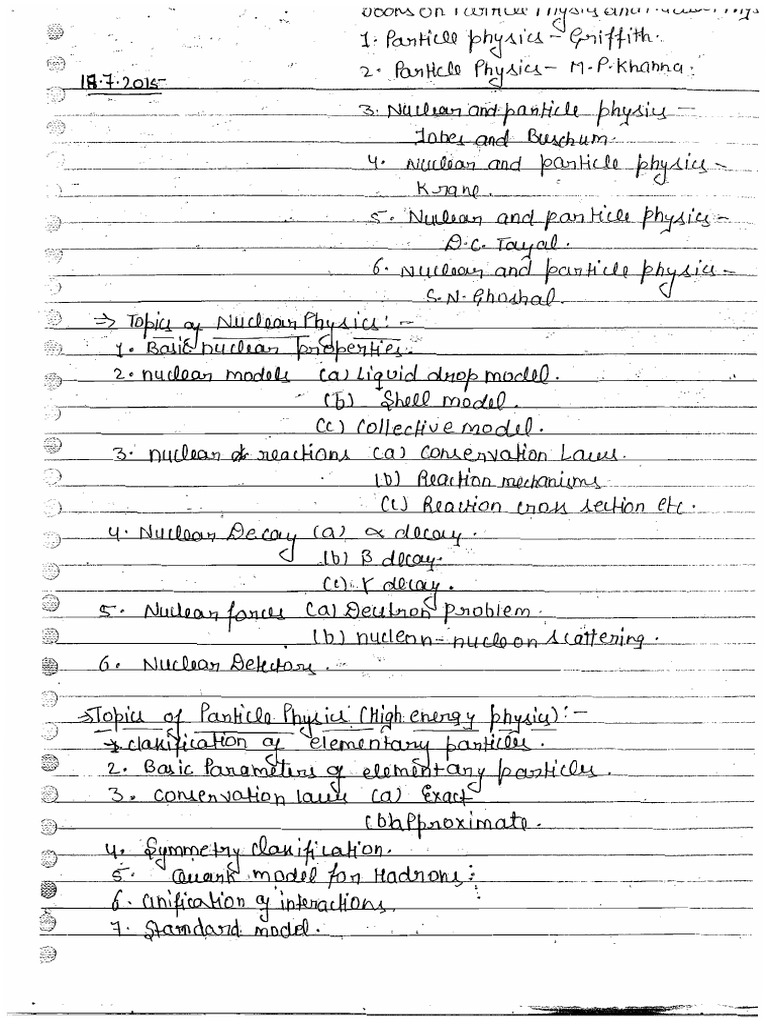 Books on Particle Physics and Nuclear Phys
1. Particle physics - Griffith.
18.7.2015
2. Particle Physics - M.P. Khanna.
3. Nuclear and particle physics -
Jobes and Buscham.
4. Nuclear and particle physics -
Krane.
5. Nuclear and particle physics -
D.C. Tayal.
6. Nuclear and particle physics -
S.N. Ghoshal.
⇒ Topics of Nuclear Physics: -
1. Basic nuclear properties.
2. nuclear models (a) Liquid drop model.
(b) Shell model.
(c) Collective model.
3. nuclear reactions (a) Conservation Laws.
(b) Reaction mechanisms
(c) Reaction cross section etc.
4. Nuclear Decay (a) α decay.
(b) β decay.
(c) γ decay.
5. Nuclear forces (a) Deutron problem.
(b) nucleon-nucleon scattering.
6. Nuclear Detectors.
→ Topics of Particle Physics (High energy physics): -
1. classification of elementary particles.
2. Basic Parameters of elementary particles.
3. conservation laws (a) Exact
(b) Approximate.
4. Symmetry classification.
5. Quark model for Hadrons:
6. Unification of interactions.
7. Standard model.